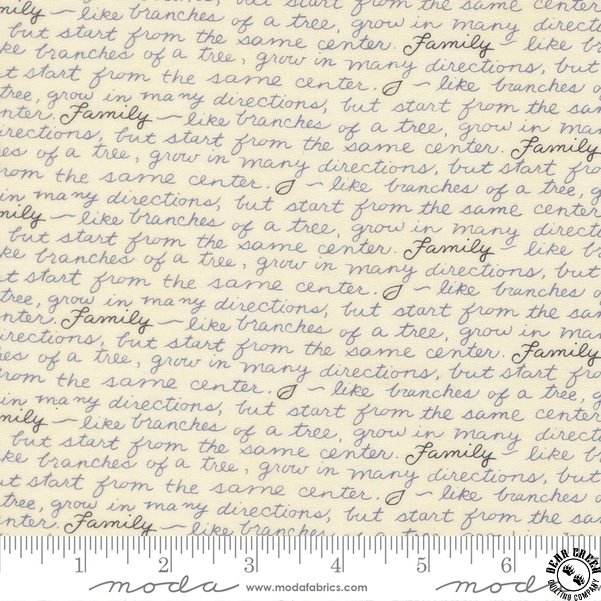 but start from the same center
mily ~ like branches of a tree, grow in many directions,
but start from the same center. Family ~ like b
ke branches of a tree, grow in many directions, but
t start from the same center. ~ like branches o
tree, grow in many directions, but start from the sa
nter. Family ~ like branches of a tree, grow in man
irections, but start from the same center. Family
es of a tree, grow in many directions, but start fro
rom the same center. ~ like branches of a tree, g
in many directions, but start from the same center
mily ~ like branches of a tree, grow in many directi
but start from the same center. Family ~ like b
ke branches of a tree, grow in many directions, but
t start from the same center. ~ like branches o
tree, grow in many directions, but start from the sa
nter. Family ~ like branches of a tree, grow in man
irections, but start from the same center. Family
es of a tree, grow in many directions, but start fro
rom the same center. ~ like branches of a tree, g
in many directions, but start from the same center
mily ~ like branches of a tree, grow in many directi
but start from the same center. Family ~ like b
ke branches of a tree, grow in many directions, but
t start from the same center. ~ like branches o
tree, grow in many directions, but start from the sa
nter. Family ~ like branches of a tree, grow in man
1 2 3 4 5 6
moda www.modafabrics.com moda
BEAR CREEK QUILTING COMPANY